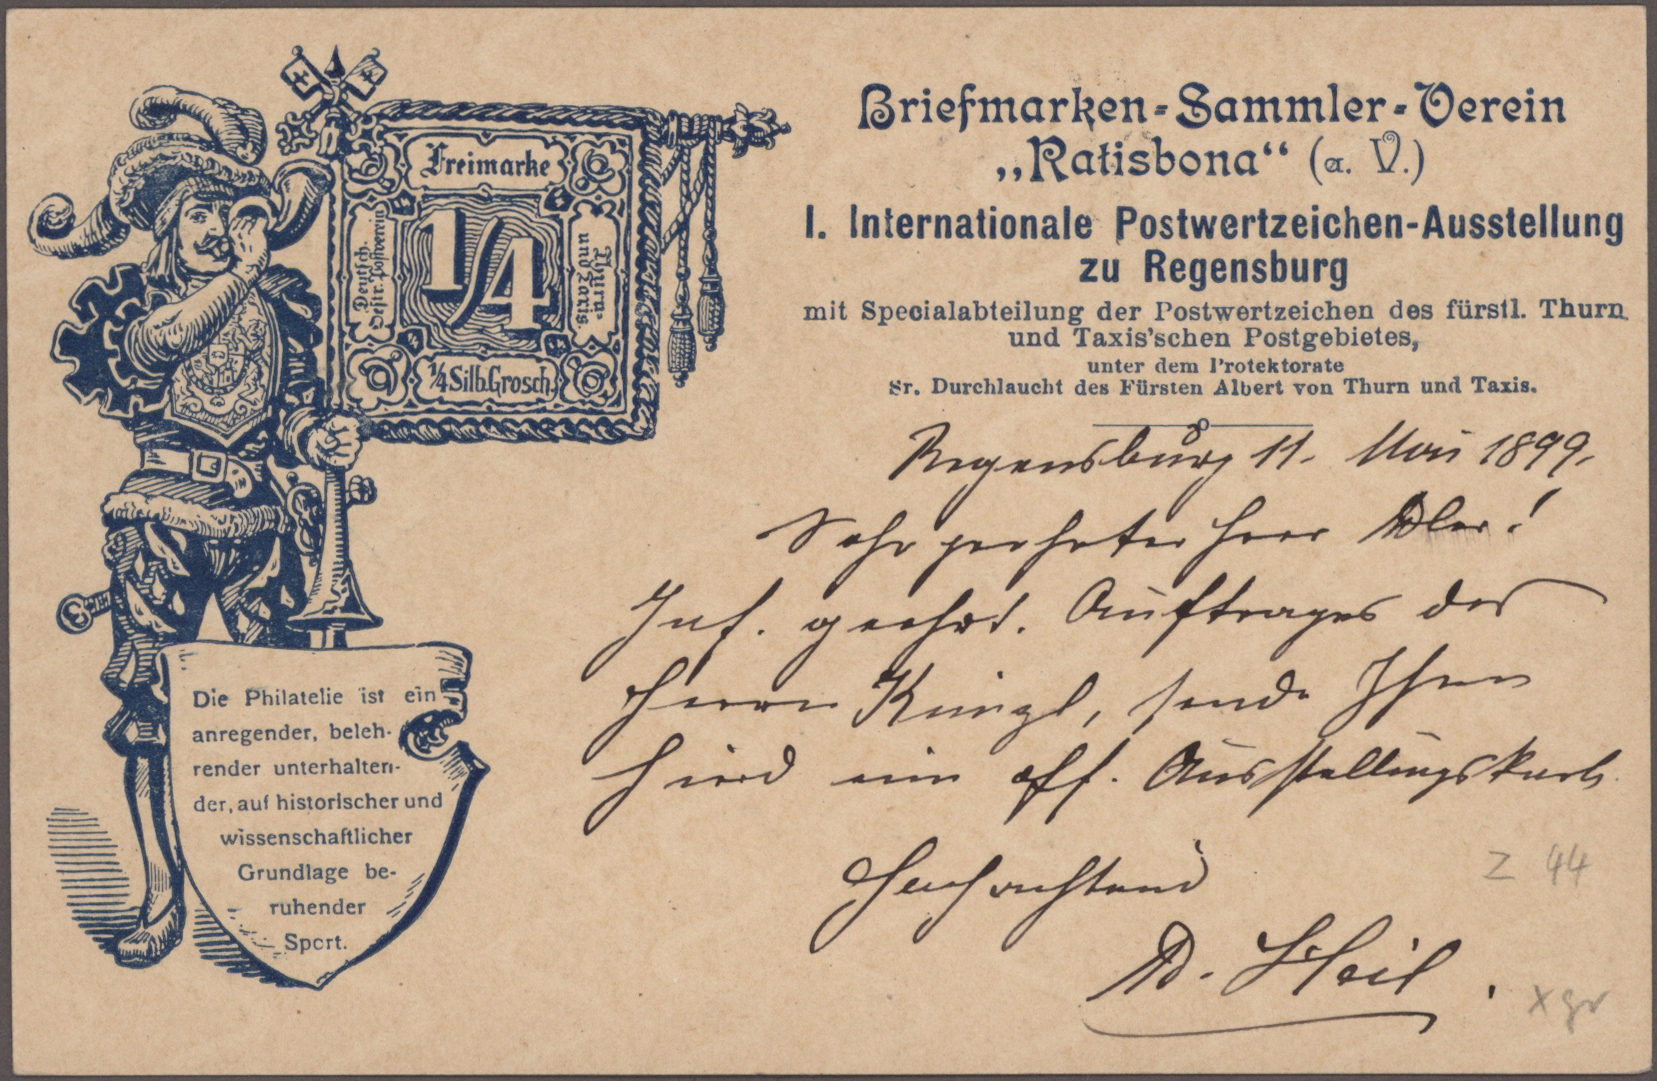 Briefmarken-Sammler-Verein
„Ratisbona“ (a. V.)
I. Internationale Postwertzeichen-Ausstellung
zu Regensburg
mit Specialabteilung der Postwertzeichen des fürstl. Thurn
und Taxis'schen Postgebietes,
unter dem Protektorate
Sr. Durchlaucht des Fürsten Albert von Thurn und Taxis.
Freimarke
Deutsch.
Oestr. Postverein
1/4
Thurn
und Taxis
1/4 Silb. Grosch.
Regensburg 11. Mai 1899.
Sehr geehrter Herr
geehrt. Auftrages des
Herrn sende Ihnen
ein off. Ausstellungskarte
Hochachtend
Z 44
x gr
Die Philatelie ist ein
anregender, beleh-
render unterhalten-
der, auf historischer und
wissenschaftlicher
Grundlage be-
ruhender
Sport.